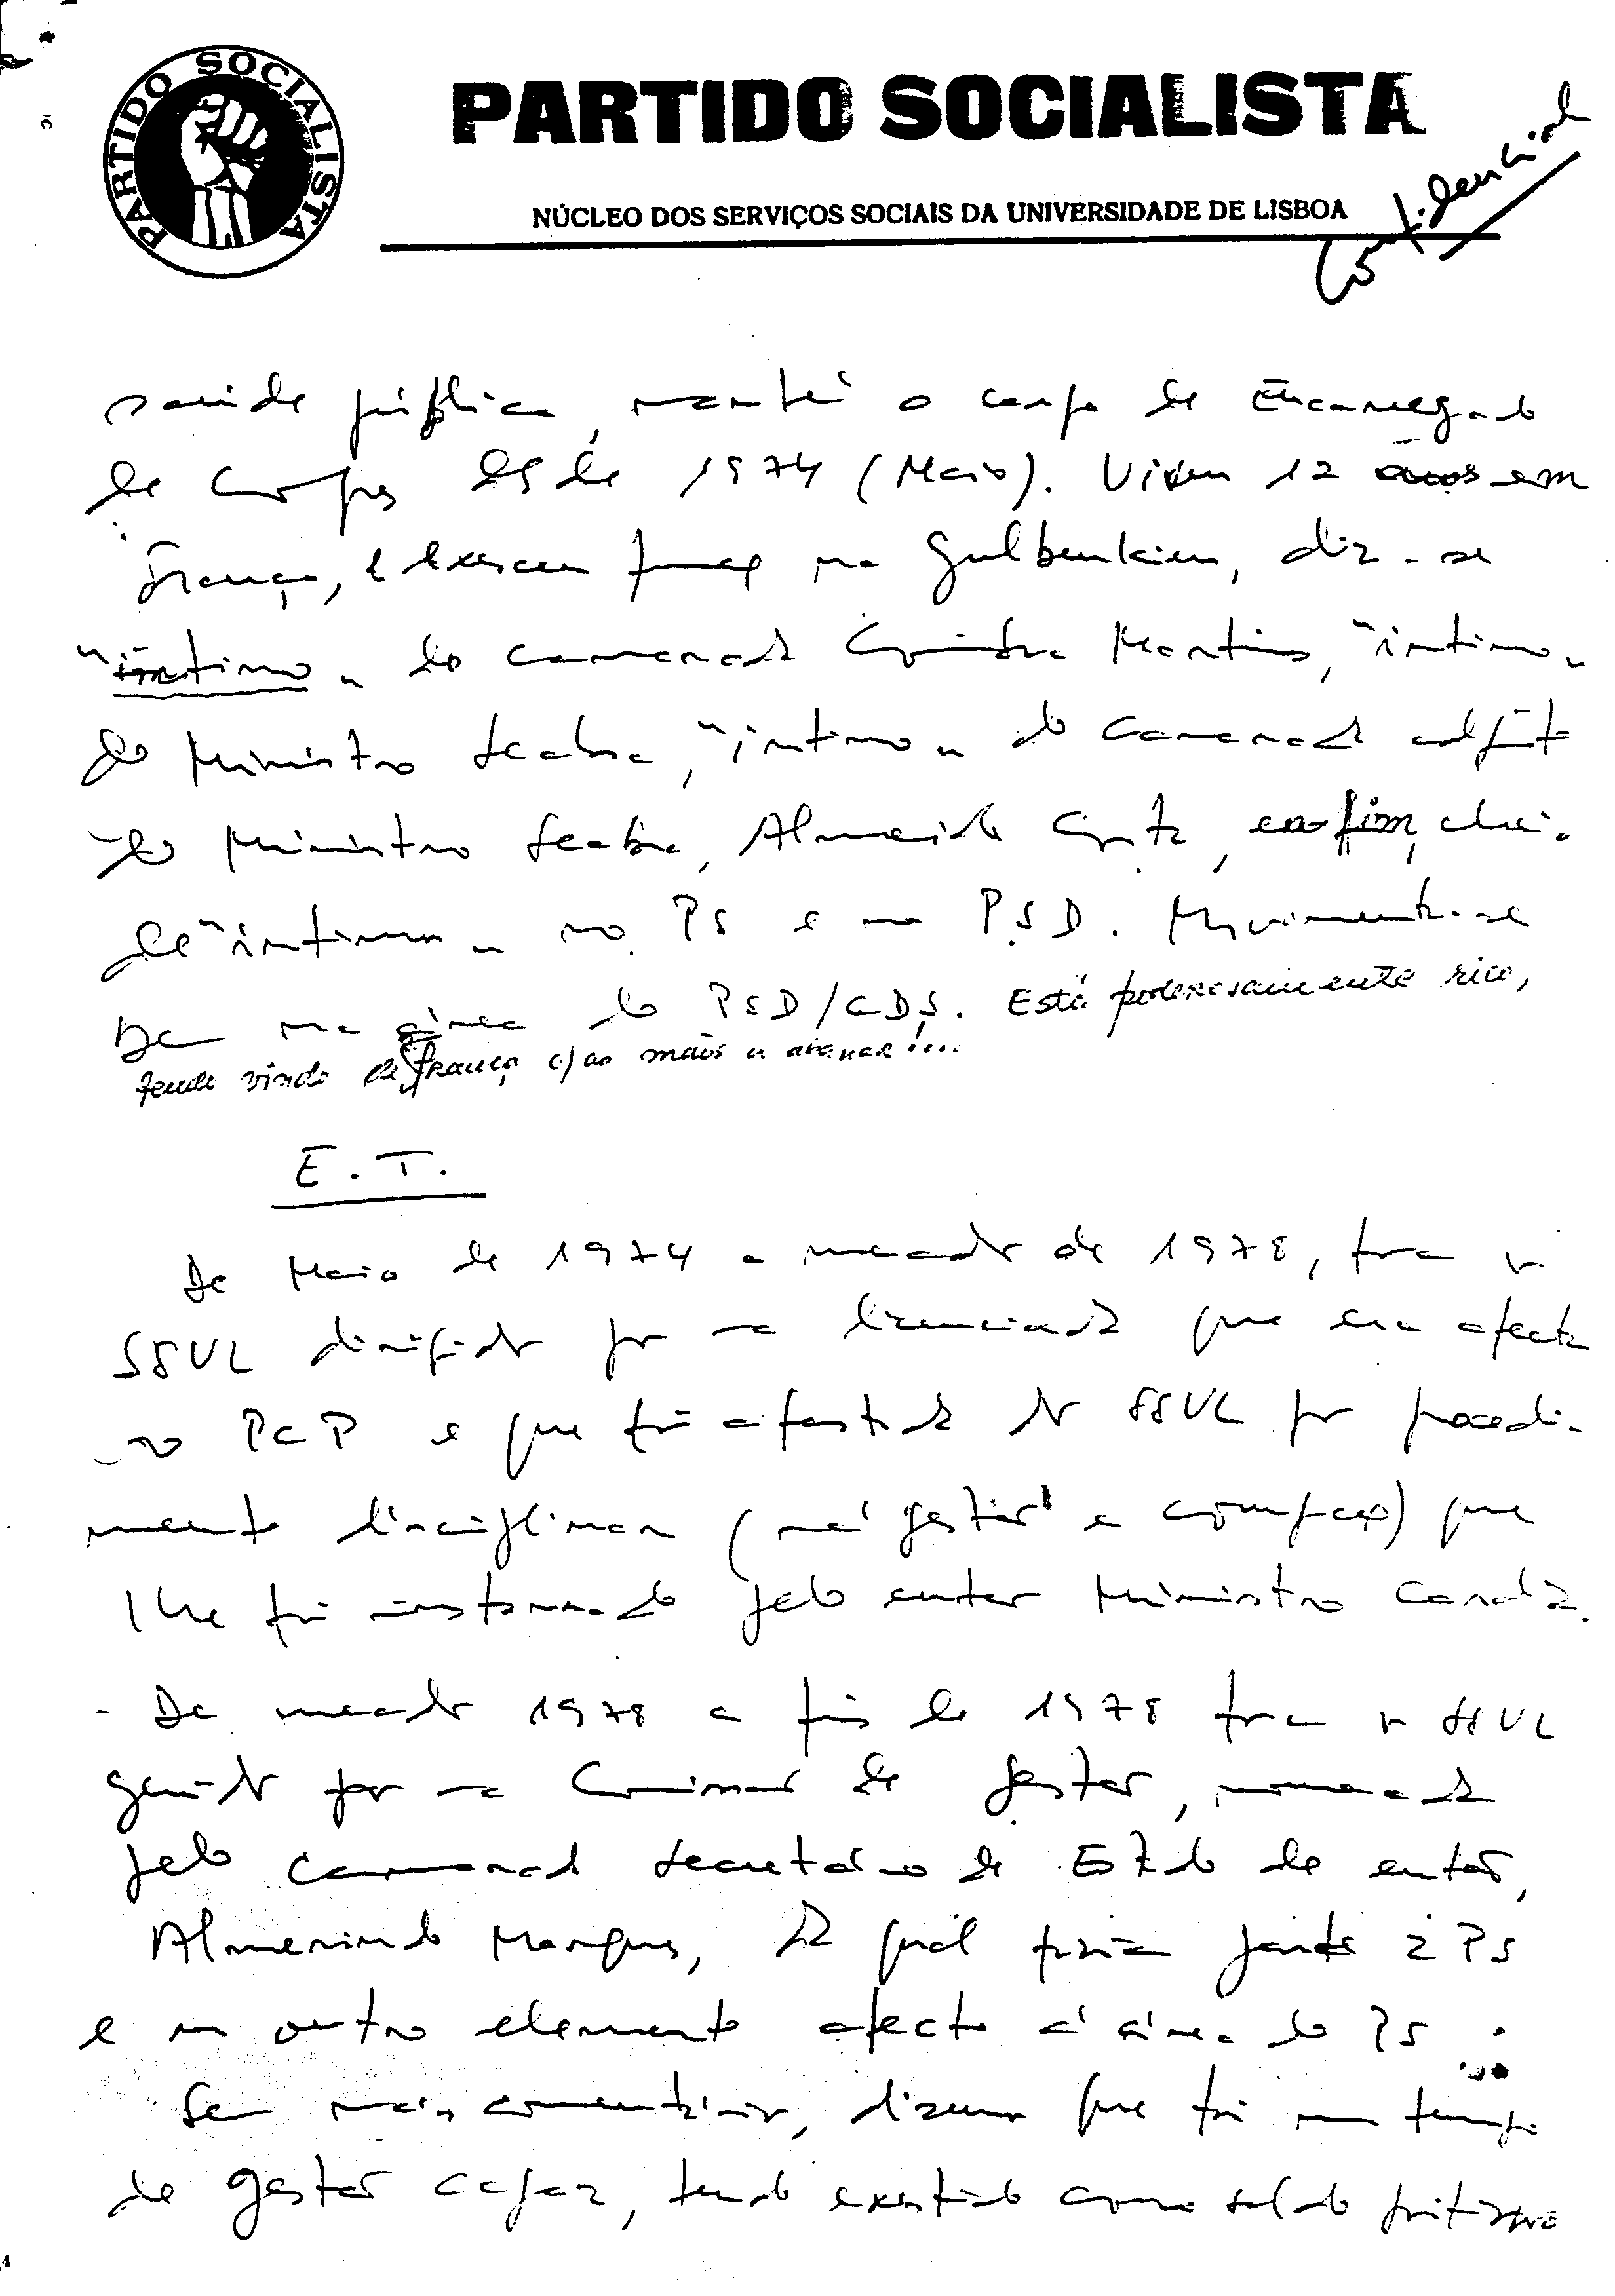 PARTIDO SOCIALISTA
PARTIDO SOCIALISTA
NÚCLEO DOS SERVIÇOS SOCIAIS DA UNIVERSIDADE DE LISBOA
Confidencial
saúde pública, mantém o cargo de Encarregado
de Compras desde 1974 (Maio). Viveu 12 anos em
França, e exerceu funções na Gulbenkian, diz-se
"íntimo" do camarada Coimbra Martins, "íntimo"
do Ministro Seabra, "íntimo" do camarada adjunto
do Ministro Seabra, Almeida Costa, enfim, cheio
de "íntimos" no PS e no PSD. Movimenta-se
bem na área do PSD/CDS. Está poderosamente rico,
tendo vindo de França c/ as mãos a abanar!...
E.T.
De Maio de 1974 a meados de 1978, foram os
SSUL dirigidos por uma licenciada que era afecta
ao PCP e que foi afastada dos SSUL por procedi-
mento disciplinar (má gestão e corrupção) que
lhe foi instaurado pelo então Ministro Cardia.
- De meados 1978 a fins de 1978 foram os SSUL
geridos por uma Comissão de gestão, nomeada
pelo camarada Secretário de Estado de então,
Almerindo Marques, da qual fazia parte o PS
e um outro elemento afecto à área do PS.
Sem mais comentários, dizemos que foi um tempo
de gestão capaz, tendo existido como saldo positivo